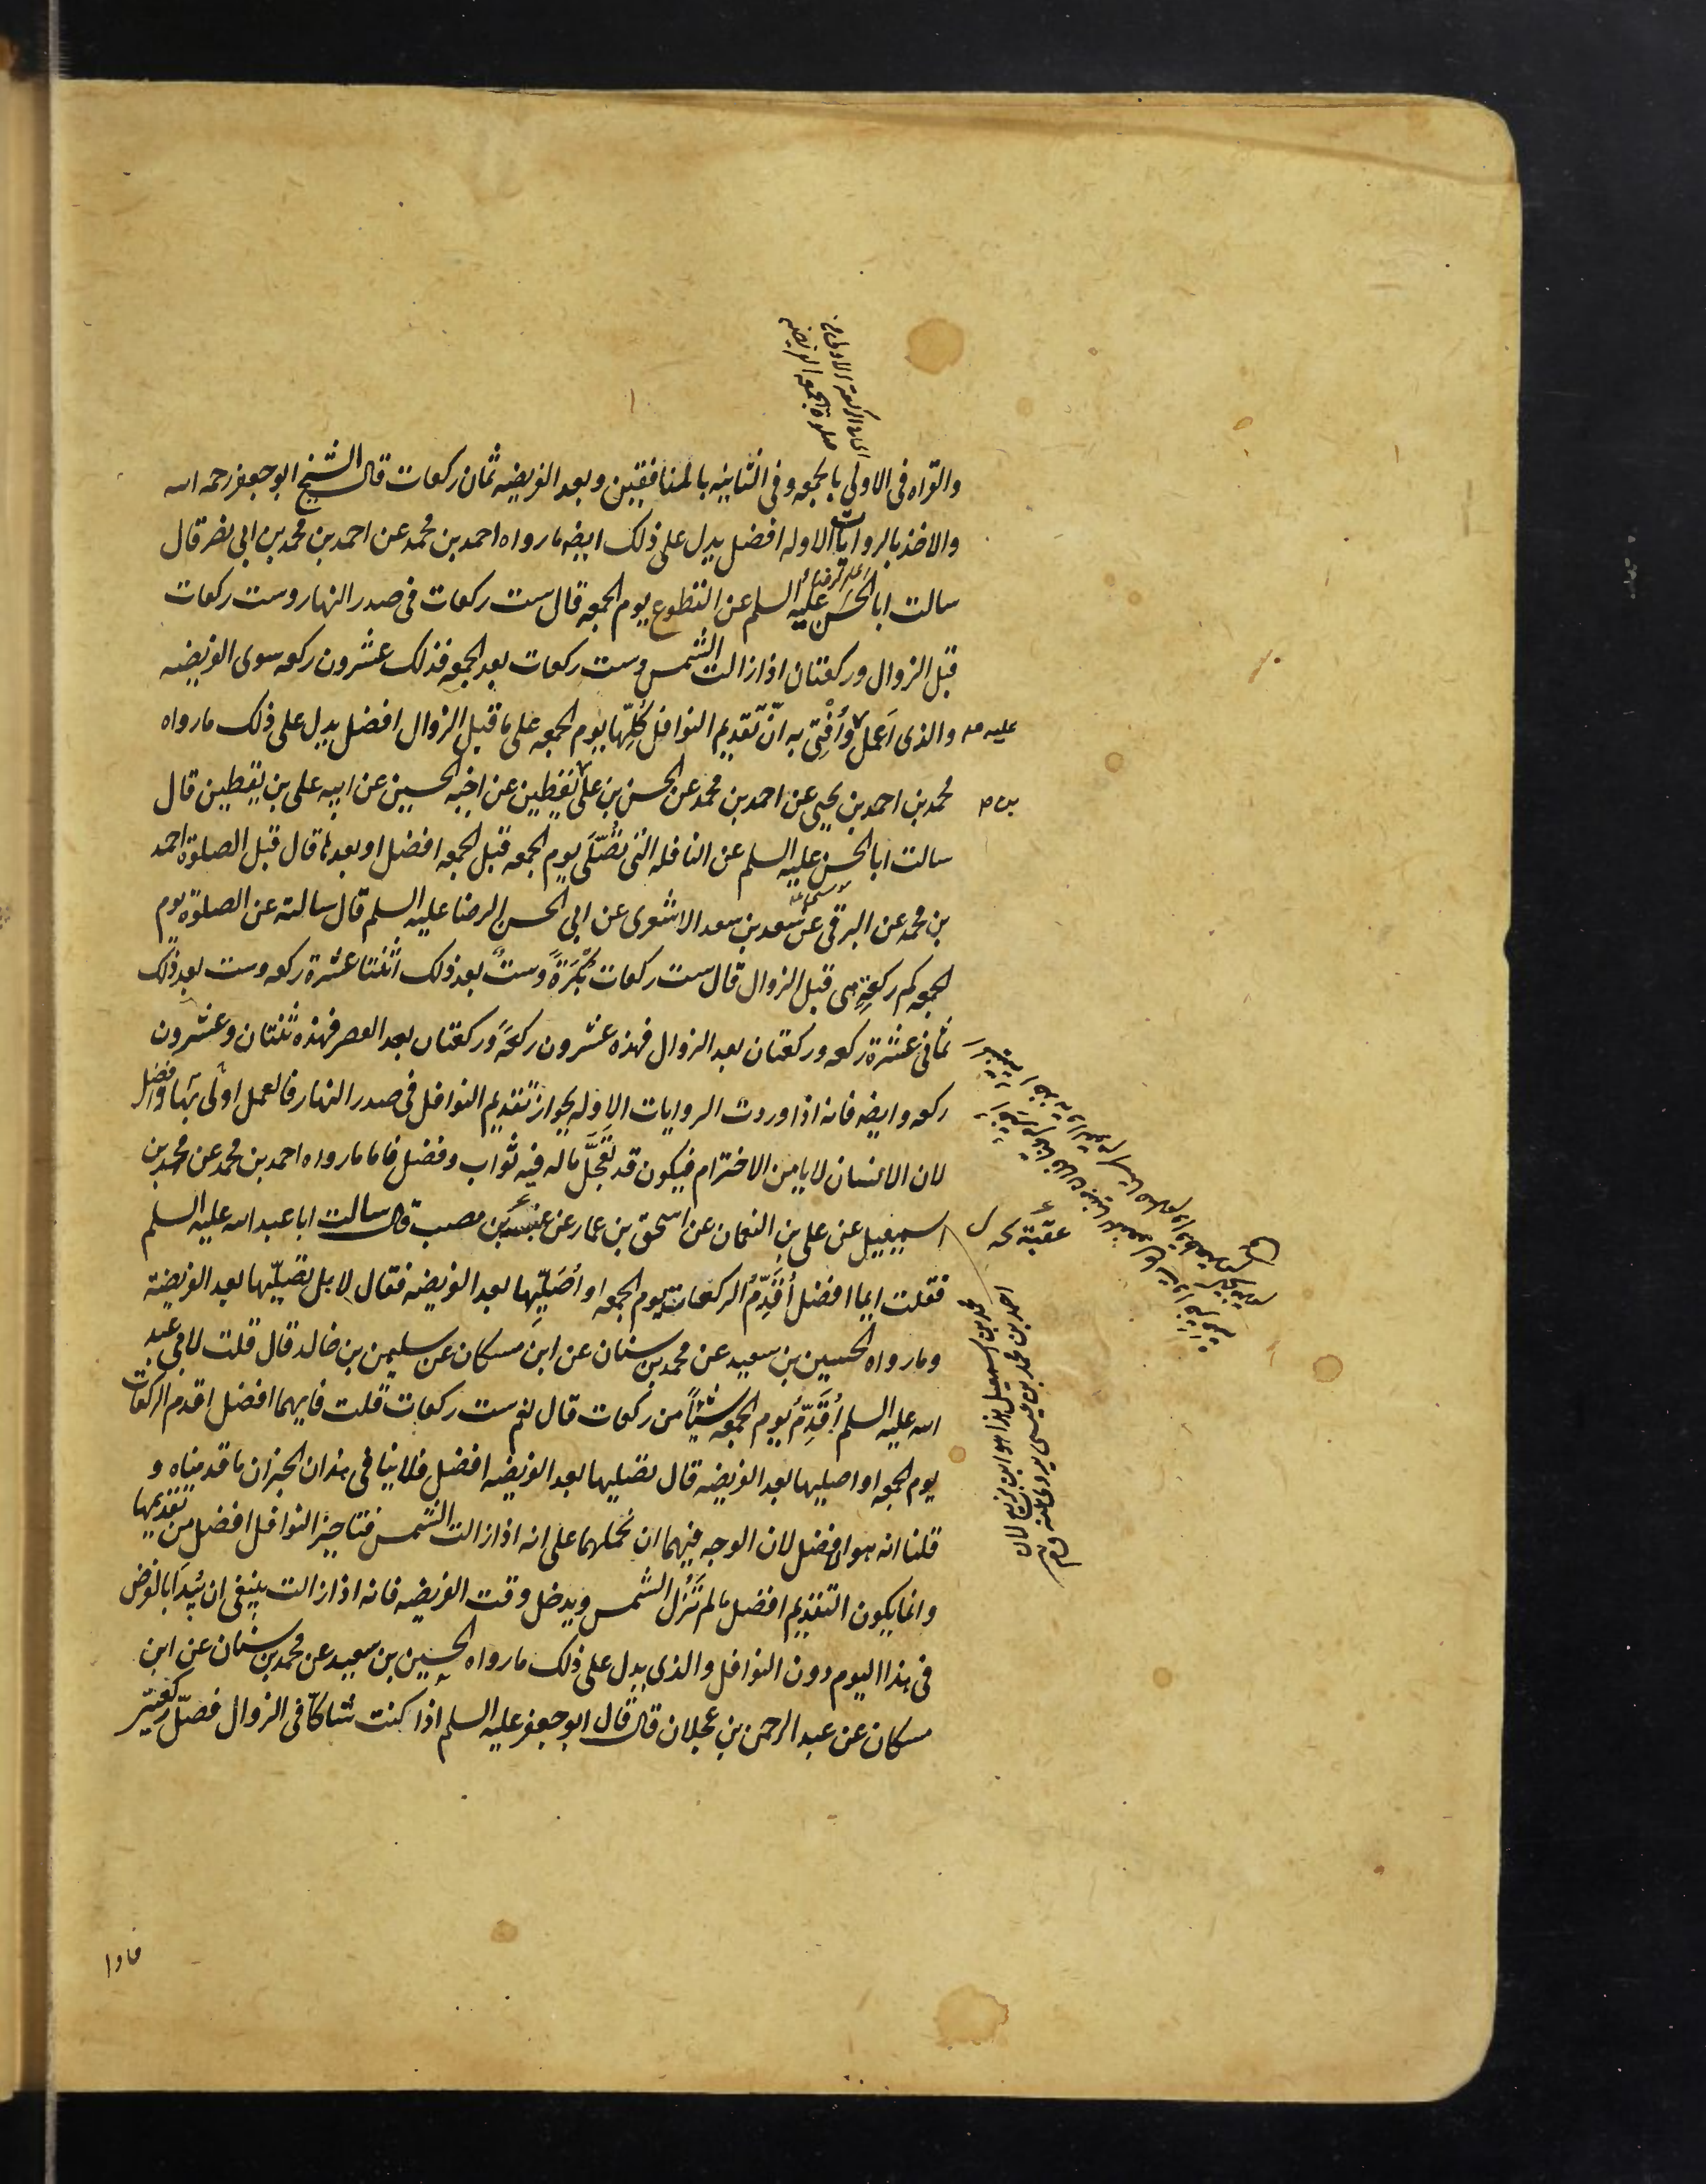 صلوة الجمعه الفريضه
والقراه فى الاولى بالجمعه وفى الثانيه بالمنافقين وبعد الفريضه ثمان ركعات قال الشيخ ابو جعفر رحمه الله
والاخذ بالروايات الاوله افضل يدل على ذلك ايضه ما رواه احمد بن محمد عن احمد بن محمد بن ابى نصر قال
سالت ابا الحسن عليه السلم عن التطوع يوم الجمعه قال ست ركعات فى صدر النهار وست ركعات
قبل الزوال وركعتان اذا زالت الشمس وست ركعات بعد الجمعه فذلك عشرون ركعه سوى الفريضه
والذى اَعمل وأُفْتِى به انّ تقديم النوافل كُلِّها يوم الجمعه على ما قبل الزوال افضل يدل على ذلك ما رواه
عليه
محمد بن احمد بن يحيى عن احمد بن محمد عن الحسن بن على يقطين عن اخيه الحسين عن ابيه على بن يقطين قال
بن
سالت ابا الحسن عليه السلم عن النافله التى تُصَلَّى يوم الجمعه قبل الجمعه افضل او بعدها قال قبل الصلوة احمد
بن محمد عن البرقى عن سعد بن سعد الاشعرى عن ابى الحسن الرضا عليه السلم قال سالته عن الصلوة يوم
الجمعه كم ركعةٍ هى قبل الزوال قال ست ركعات بُكْرَةً وستٌ بعد ذلك اثنتا عشرة ركعه وست بعد ذلك
ثمانى عشرة ركعه وركعتان بعد الزوال فهذه عشرون ركعةً وركعتان بعد العصر فهذه ثنتان وعشرون
ركعه وايضه فانه اذا وردت الروايات الاوله بجواز تقديم النوافل فى صدر النهار فالعمل اولى بها وافضل
لان الانسان لا يامن الاخترام فيكون قد تَعَجَّلَ ماله فيه ثواب وفضل فاما ما رواه احمد بن محمد عن محمد بن
اسمعيل عن على بن النعمان عن اسحق بن عمار عن عنبسة بن مصعب قال سالت ابا عبد الله عليه السلم
عقبة
فقلت ايما افضل أُقَدِّمُ الركعات يوم الجمعه او أُصَلِّيها بعد الفريضه فقال لا بل تصلّيها بعد الفريضة
وما رواه الحسين بن سعيد عن محمد بن سنان عن ابن مسكان عن سليمن بن خالد قال قلت لابى عبد
الله عليه السلم أُقَدِّمُ يوم الجمعه شيئاً من ركعات قال نعم ست ركعات قلت فايهما افضل اقدم الركعات
يوم الجمعه او اصليها بعد الفريضه قال تصليها بعد الفريضه افضل فلا ينافى هذان الخبران ما قدمناه و
قلنا انه هو الافضل لان الوجه فيهما ان نحملهما على انه اذا زالت الشمس فتاخير النوافل افضل من تقديمها
وانما يكون التقديم افضل ما لم تَزُل الشمس ويدخل وقت الفريضه فانه اذا زالت ينبغى ان يُبدَا بالفرض
فى هذا اليوم دون النوافل والذى يدل على ذلك ما رواه الحسين بن سعيد عن محمد بن سنان عن ابن
مسكان عن عبد الرحمن بن عجلان قال قال ابو جعفر عليه السلم اذا كنت شاكّا فى الزوال فصلّ ركعتين
محمد بن اسمعيل هذا هو ابن بزيع لان
احمد بن محمد بن عيسى يروى عنه
فاذا